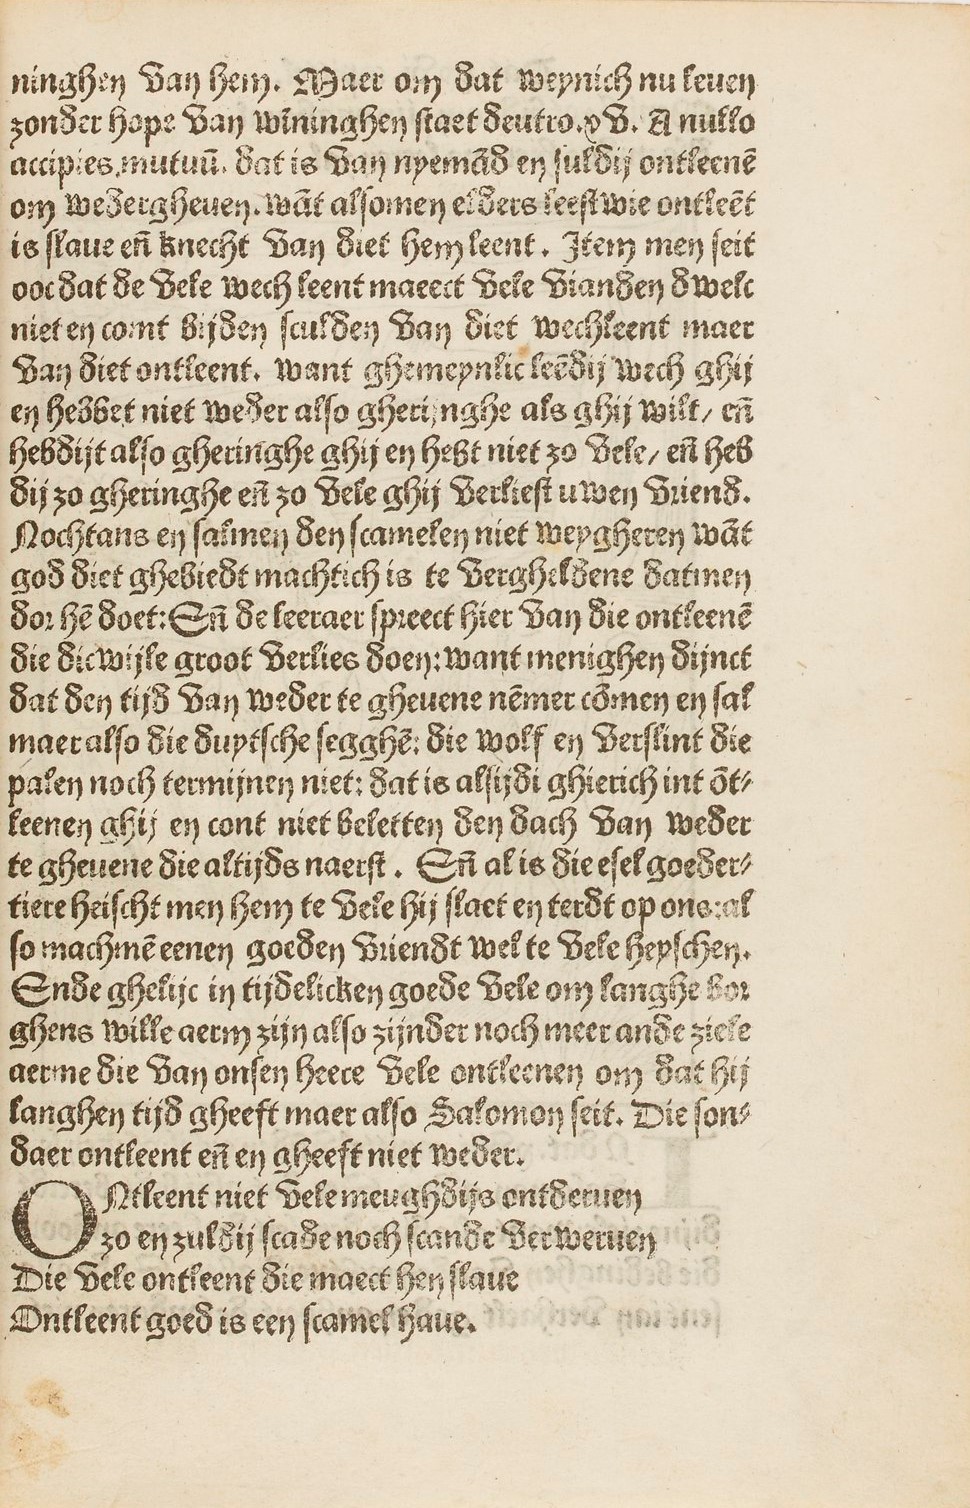 ninghen van hem. Maer om dat weynich nu leven
zonder hope van wīninghen staet deutro.xv. A nullo
accipies mutuū. dat is van nyemād en suldij ontleenē
om wedergheven. wāt alsomen elders leest wie ontleēt
is slaue eñ knecht van diet hem leent. Item men seit
ooc dat de vele wech leent maect vele vianden dwelc
niet en comt bijden sculden van diet wechleent maer
van diet ontleent. want ghemeynlic leēdij wech ghij
en hebbet niet weder also gheringhe als ghij wilt/ eñ
hebdijt also gheringhe ghij en hebt niet zo vele/ eñ heb
dij zo gheringhe eñ zo vele ghij verliest uwen vriend.
Nochtans en salmen den scamelen niet weygheren wāt
god diet ghebiedt machtich is te vergheldene datmen
dor hē doet: Eñ de leeraer spreect hier van die ontleenē
die dicwijle groot verlies doen: want menighen dijnct
dat den tijd van weder te ghevene nēmer cōmen en sal
maer also die duytsche segghē: die wolf en verslint die
palen noch termijnen niet: dat is alsijdi ghierich int ōt⸗
leenen ghij en cont niet beletten den dach van weder
te ghevene die altijds naerst. Eñ al is die esel goeder⸗
tiere heischt men hem te vele hij slaet en terdt op ons: al
so machmē eenen goeden vriendt wel te vele heyschen.
Ende ghelijc in tijdelicken goede vele om langhe bor
ghens wille aerm zijn also zijnder noch meer ande ziele
aerme die van onsen heere vele ontleenen om dat hij
langhen tijd gheeft maer also Salomon seit. Die son⸗
daer ontleent eñ en gheeft niet weder.
ONtleent niet vele meughdijs ontderuen
zo en zuldij scade noch scande verweruen
Die vele ontleent die maect hen slaue
Ontleent goed is een scamel haue.